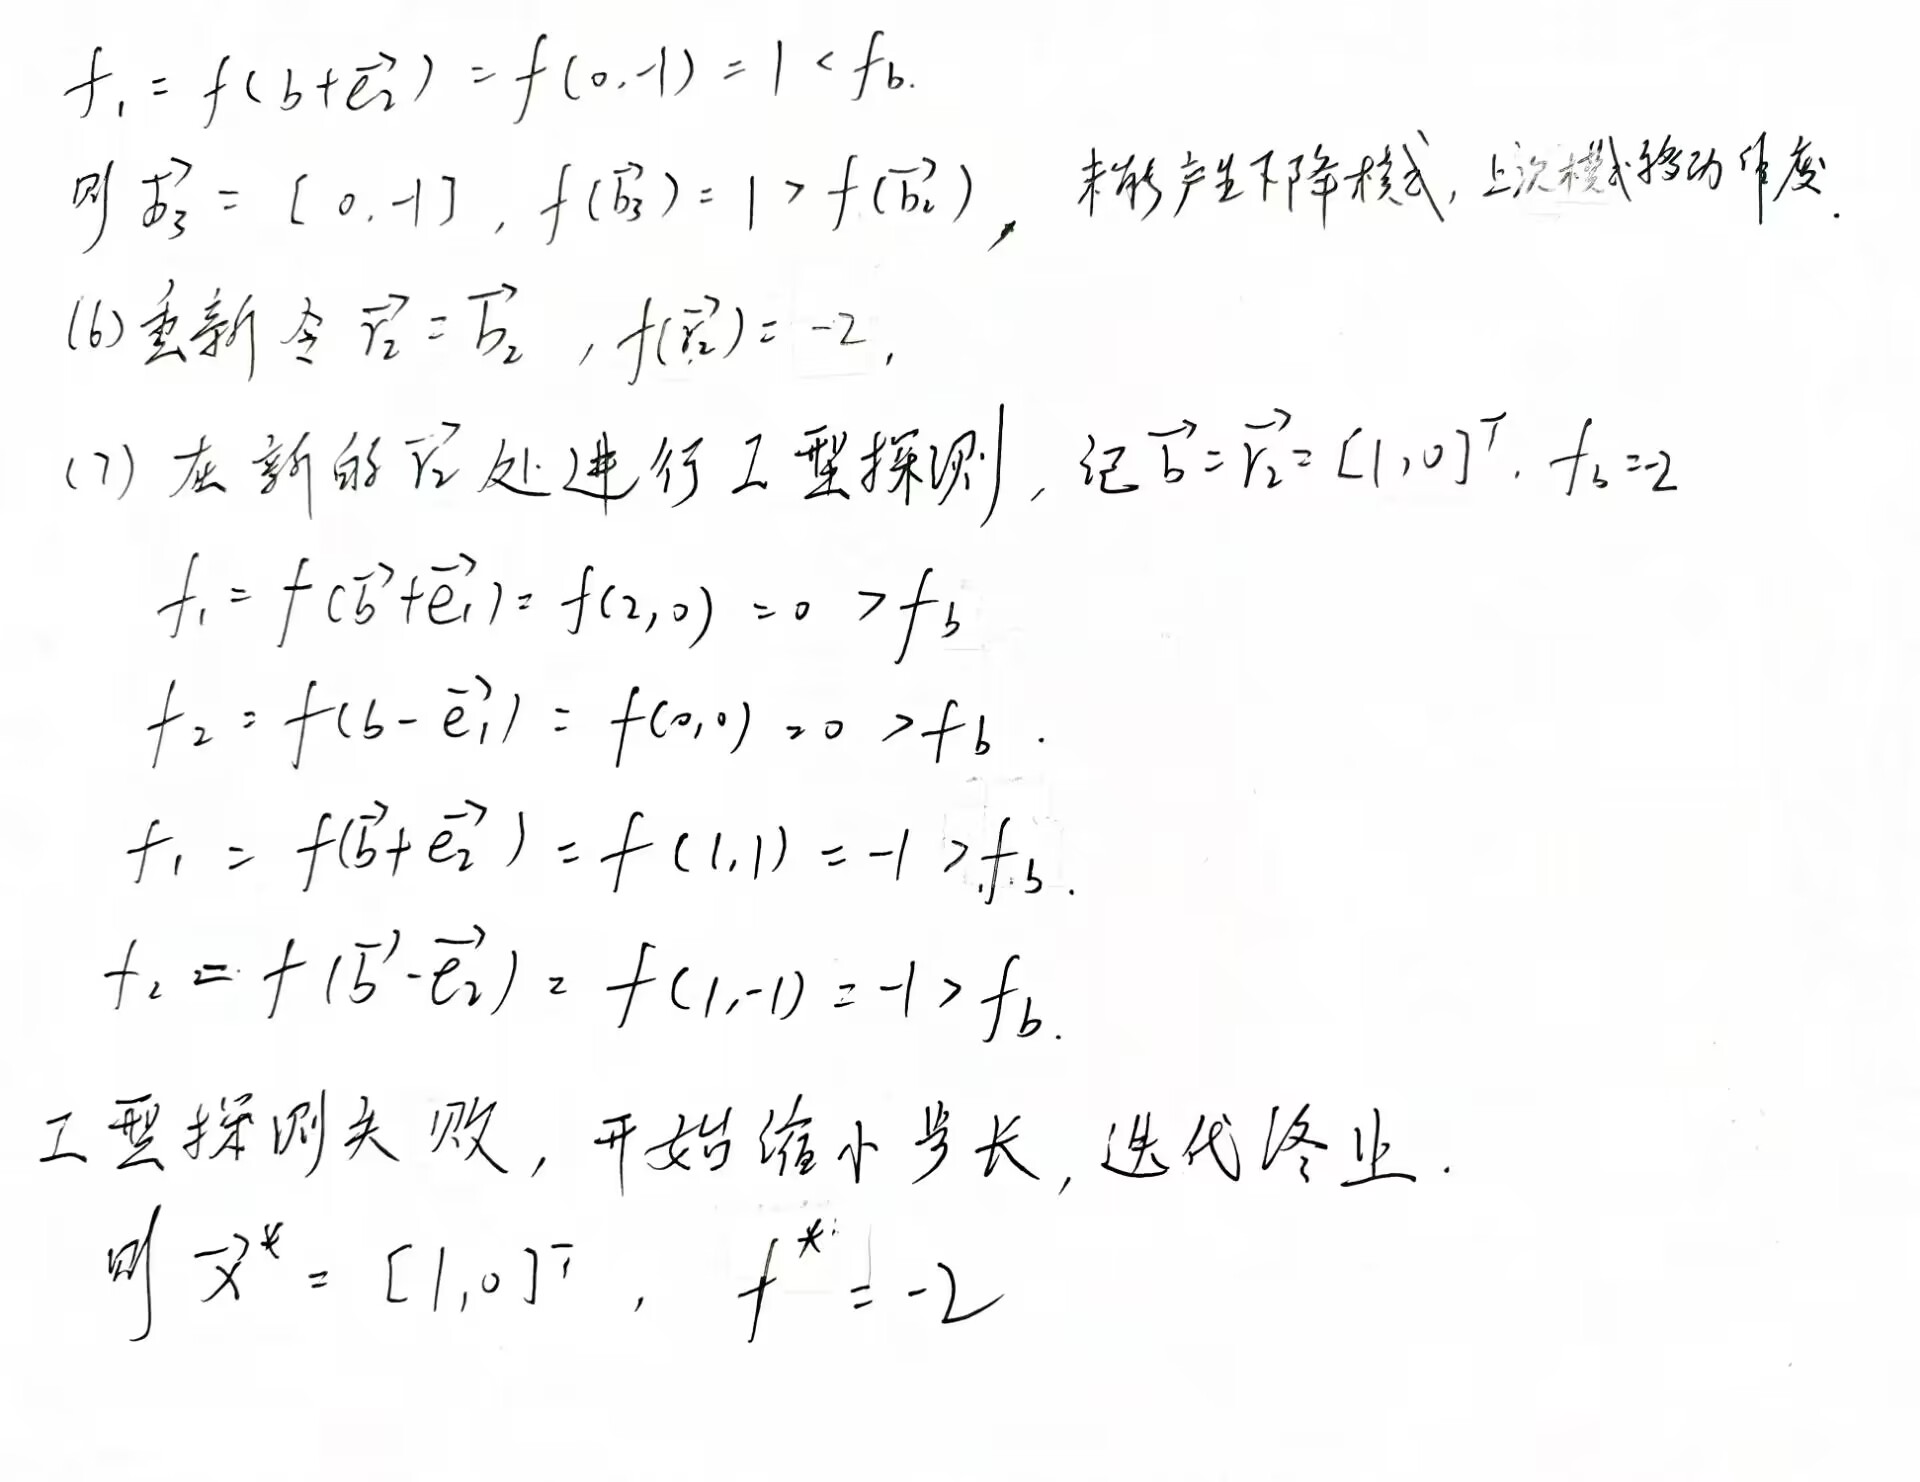 f₁ = f(b+e⃗₂) = f(0,-1) = 1 < f_b.
则 b⃗₃ = [0,-1], f(b⃗₃) = 1 > f(b⃗₂), 未能产生下降模式, 上次模式移动作废.
(6) 重新令 r⃗₂ = b⃗₂, f(r⃗₂) = -2,
(7) 在新的 r⃗₂ 处进行工型探测, 记 b⃗ = r⃗₂ = [1,0]ᵀ, f_b = -2
f₁ = f(b⃗+e⃗₁) = f(2,0) = 0 > f_b
f₂ = f(b-e⃗₁) = f(0,0) = 0 > f_b.
f₁ = f(b⃗+e⃗₂) = f(1,1) = -1 > f_b.
f₂ = f(b⃗-e⃗₂) = f(1,-1) = -1 > f_b.
工型探测失败, 开始缩小步长, 迭代终止.
则 x⃗* = [1,0]ᵀ, f* = -2